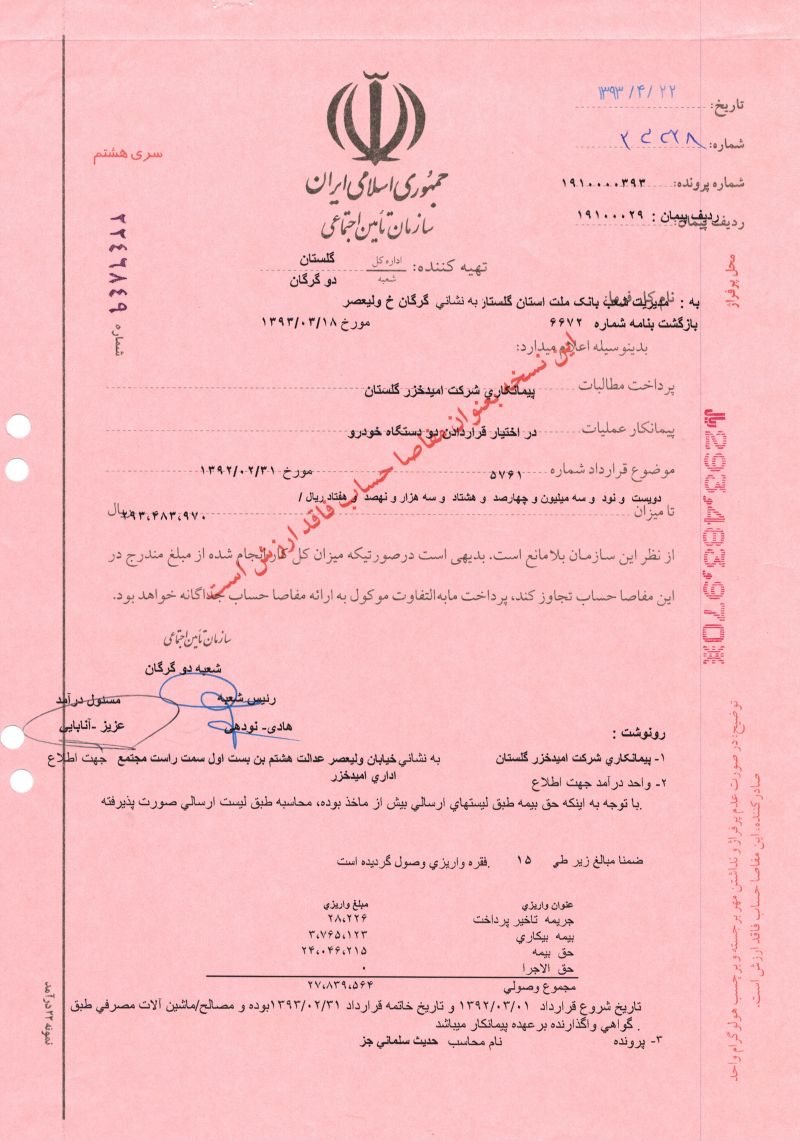 تاریخ: ۱۳۹۳/۴/۲۲
شماره:
شماره پرونده: ۱۹۱۰۰۰۰۳۹۳
ردیف پیمان : ۱۹۱۰۰۰۲۹
سری هشتم
جمهوری اسلامی ایران
سازمان تأمین اجتماعی
شماره ۲۲۴۶۸۴۹
تهیه کننده: اداره کل شعبه گلستان
دو گرگان
محل پرفراژ
به : مدیریت شعب بانک ملت استان گلستان به نشاني گرگان خ ولیعصر
بازگشت بنامه شماره ۶۶۷۲ مورخ ۱۳۹۳/۰۳/۱۸
بدینوسیله اعلام میدارد:
پرداخت مطالبات پیمانکاري شرکت امیدخزر گلستان
پیمانکار عملیات در اختیار قراردادن دو دستگاه خودرو
موضوع قرارداد شماره ۵۷۶۱ مورخ ۱۳۹۲/۰۲/۳۱
دویست و نود و سه میلیون و چهارصد و هشتاد و سه هزار و نهصد و هفتاد ریال /
تا میزان ۲۹۳،۴۸۳،۹۷۰ ریال
از نظر این سازمان بلامانع است. بدیهی است درصورتیکه میزان کل کار انجام شده از مبلغ مندرج در
این مفاصا حساب تجاوز کند، پرداخت مابه‌التفاوت موکول به ارائه مفاصا حساب جداگانه خواهد بود.
این نسخه بعنوان مفاصا حساب فاقد ارزش است
ریال 293,483,970
سازمان تأمین اجتماعی
شعبه دو گرگان
رئیس شعبه مسئول درآمد
هادی- نودهی عزیز -آنابایی
رونوشت :
۱- پیمانکاري شرکت امیدخزر گلستان به نشاني خیابان ولیعصر عدالت هشتم بن بست اول سمت راست مجتمع جهت اطلاع
اداري امیدخزر
۲- واحد درآمد جهت اطلاع
.با توجه به اینکه حق بیمه طبق لیستهاي ارسالي بیش از ماخذ بوده، محاسبه طبق لیست ارسالي صورت پذیرفته
ضمنا مبالغ زیر طي ۱۵ .فقره واریزي وصول گردیده است
عنوان واریزي مبلغ واریزي
جریمه تاخیر پرداخت ۲۸،۲۲۶
بیمه بیکاري ۳،۷۶۵،۱۲۳
حق بیمه ۲۴،۰۴۶،۲۱۵
حق الاجرا ۰
مجموع وصولي ۲۷،۸۳۹،۵۶۴
تاریخ شروع قرارداد ۱۳۹۲/۰۳/۰۱ و تاریخ خاتمه قرارداد ۱۳۹۳/۰۲/۳۱بوده و مصالح/ماشین آلات مصرفي طبق
. گواهي واگذارنده برعهده پیمانکار میباشد
۳- پرونده نام محاسب حدیث سلماني جز
توضیح: در صورت عدم پرفراژ و نداشتن مهر برجسته و برچسب هولوگرام واحد
صادرکننده، این مفاصا حساب فاقد ارزش است.
نمونه ۲۲ درآمد